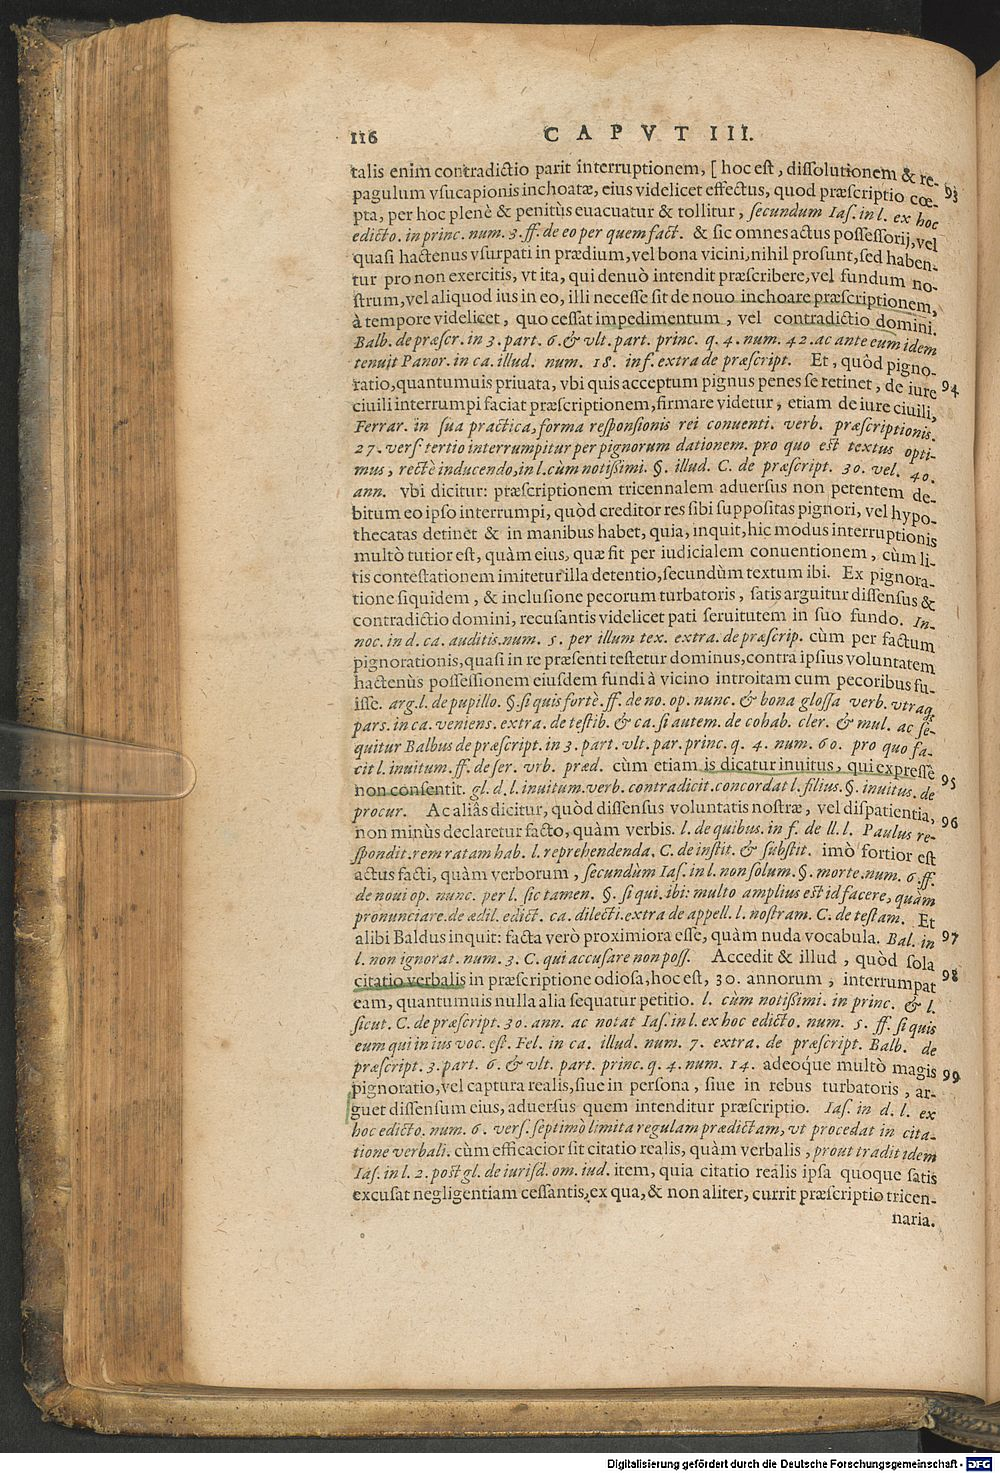 116 CAPVT III.
talis enim contradictio parit interruptionem, [ hoc est, dissolutionem & re- 93
pagulum vsucapionis inchoatæ, eius videlicet effectus, quod præscriptio cœ-
pta, per hoc plenè & penitùs euacuatur & tollitur, secundum Ias. in l. ex hoc
edicto. in princ. num. 3. ff. de eo per quem fact. & sic omnes actus possessorij, vel
quasi hactenus vsurpati in prædium, vel bona vicini, nihil prosunt, sed haben-
tur pro non exercitis, vt ita, qui denuò intendit præscribere, vel fundum no-
strum, vel aliquod ius in eo, illi necesse sit de nouo inchoare præscriptionem,
à tempore videlicet, quo cessat impedimentum, vel contradictio domini.
Balb. de præscr. in 3. part. 6. & vlt. part. princ. q. 4. num. 42. ac ante eum idem
tenuit Panor. in ca. illud. num. 18. inf. extra de præscript. Et, quòd pigno-
ratio, quantumuis priuata, vbi quis acceptum pignus penes se retinet, de iure 94
ciuili interrumpi faciat præscriptionem, firmare videtur, etiam de iure ciuili,
Ferrar. in sua practica, forma responsionis rei conuenti. verb. præscriptionis.
27. vers tertio interrumpitur per pignorum dationem. pro quo est textus opti-
mus, rectè inducendo, in l. cùm notißimi. §. illud. C. de præscript. 30. vel. 40.
ann. vbi dicitur: præscriptionem tricennalem aduersus non petentem de-
bitum eo ipso interrumpi, quòd creditor res sibi suppositas pignori, vel hypo-
thecatas detinet & in manibus habet, quia, inquit, hic modus interruptionis
multò tutior est, quàm eius, quæ fit per iudicialem conuentionem, cùm li-
tis contestationem imitetur illa detentio, secundùm textum ibi. Ex pignora-
tione siquidem, & inclusione pecorum turbatoris, satis arguitur dissensus &
contradictio domini, recusantis videlicet pati seruitutem in suo fundo. In-
noc. in d. ca. auditis. num. 5. per illum tex. extra. de præscrip. cùm per factum
pignorationis, quasi in re præsenti testetur dominus, contra ipsius voluntatem
hactenùs possessionem eiusdem fundi à vicino introitam cum pecoribus fu-
isse. arg. l. de pupillo. §. si quis fortè. ff. de no. op. nunc. & bona glossa verb. vtraq;
pars. in ca. veniens. extra. de testib. & ca. si autem. de cohab. cler. & mul. ac se-
quitur Balbus de præscript. in 3. part. vlt. par. princ. q. 4. num. 60. pro quo fa-
cit l. inuitum. ff. de ser. vrb. præd. cùm etiam is dicatur inuitus, qui expressè
non consentit. gl. d. l. inuitum. verb. contradicit. concordat l. filius. §. inuitus. de 95
procur. Ac aliâs dicitur, quòd dissensus voluntatis nostræ, vel dispatientia, 96
non minùs declaretur facto, quàm verbis. l. de quibus. in f. de ll. l. Paulus re-
spondit. rem ratam hab. l. reprehendenda. C. de instit. & substit. imò fortior est
actus facti, quàm verborum, secundùm Ias. in l. non solum. §. morte. num. 6. ff.
de noui op. nunc. per l. sic tamen. §. si qui. ibi: multo amplius est id facere, quàm
pronunciare. de ædil. edict. ca. dilecti. extra de appell. l. nostram. C. de testam. Et
alibi Baldus inquit: facta verò proximiora esse, quàm nuda vocabula. Bal. in 97
l. non ignorat. num. 3. C. qui accusare non poss. Accedit & illud, quòd sola
citatio verbalis in præscriptione odiosa, hoc est, 30. annorum, interrumpat 98
eam, quantumuis nulla alia sequatur petitio. l. cùm notißimi. in princ. & l.
sicut. C. de præscript. 30. ann. ac notat Ias. in l. ex hoc edicto. num. 5. ff. si quis
eum qui in ius voc. est. Fel. in ca. illud. num. 7. extra. de præscript. Balb. de
præscript. 3. part. 6. & vlt. part. princ. q. 4. num. 14. adeoq́ue multò magis 99
pignoratio, vel captura realis, siue in persona, siue in rebus turbatoris, ar-
guet dissensum eius, aduersus quem intenditur præscriptio. Ias. in d. l. ex
hoc edicto. num. 6. vers. septimò limita regulam prædictam, vt procedat in cita-
tione verbali. cùm efficacior sit citatio realis, quàm verbalis, prout tradit idem
Ias. in l. 2. post gl. de iurisd. om. iud. item, quia citatio realis ipsa quoque satis
excusat negligentiam cessantis, ex qua, & non aliter, currit præscriptio tricen-
naria.
Digitalisierung gefördert durch die Deutsche Forschungsgemeinschaft - DFG